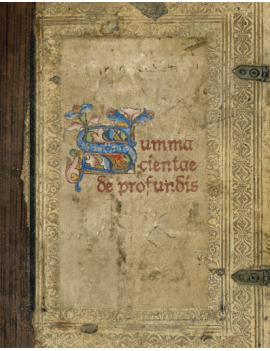 Summa
scientae
de profundis